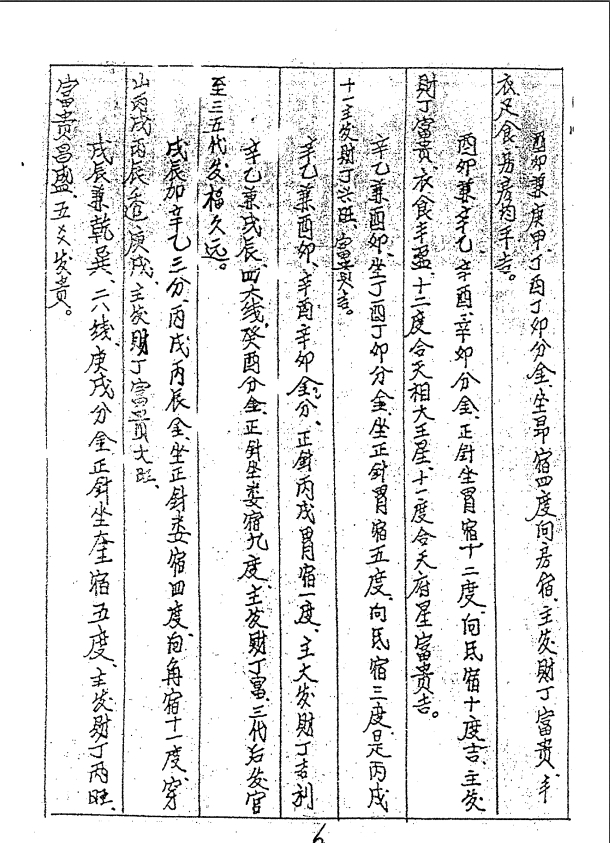 酉卯兼庚甲、丁酉丁卯分金、坐昴宿四度向房宿、主发财丁富贵、丰
衣足食、房房均平吉。
酉卯兼辛乙、辛酉、辛卯分金、正針坐胃宿十二度、向氐宿十度吉、主发
財丁富贵、衣食丰盈、十二度合天相大王星、十一度合天府星富贵吉。
辛乙兼酉卯、坐丁酉丁卯分金、坐正針胃宿五度、向氐宿三度、是丙戍
十一主发財丁兴旺、富贵吉。
辛乙兼酉卯、辛酉辛卯金分、正針丙戍胃宿一度、主大发財丁吉利
辛乙兼戍辰、四六线、癸酉分金、正針坐娄宿九度、主发财丁富、三代后发官
至三五代发福久远。
戍辰加辛乙三分、丙戍丙辰金、坐正針娄宿四度、向角宿十一度、穿
山丙戍丙辰透庚戍、主发财丁富贵大旺、
戍辰兼乾巽、二八线、庚戍分金正針坐奎宿五度、主发財丁两旺、
富贵昌盛、五爻发贵。
6